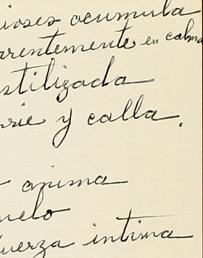 acumula
arentemente en calma
stilizada
rie y calla.
anima
uelo
uerza intima